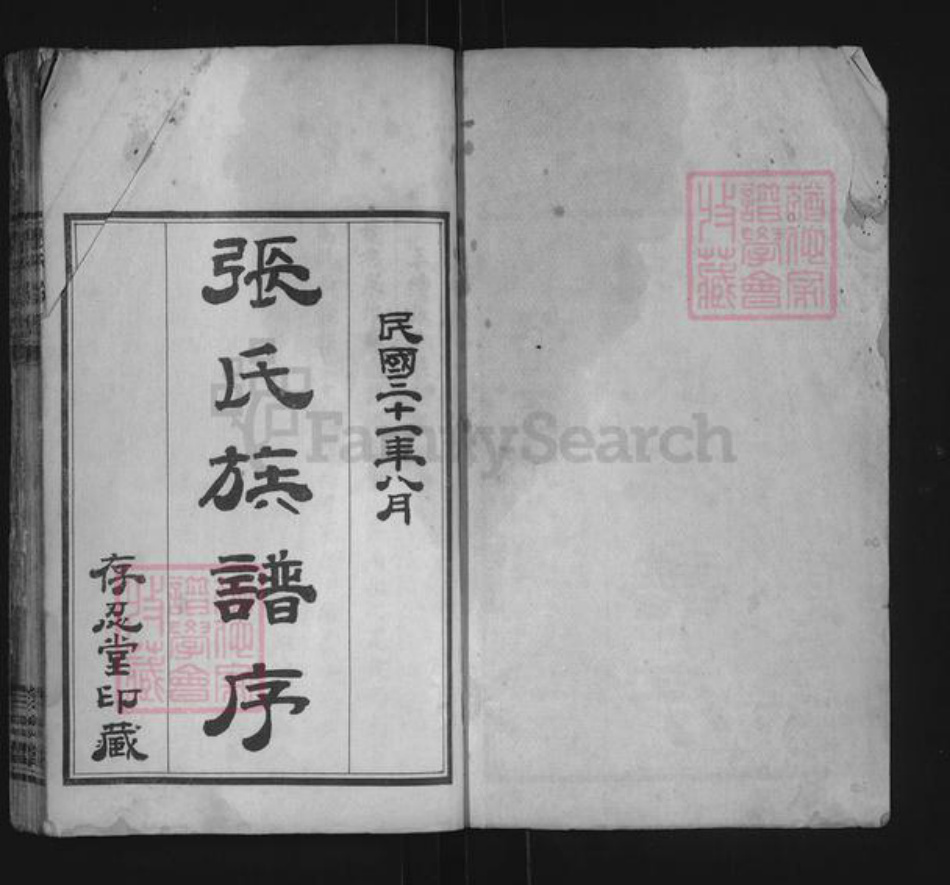 猶他家
譜學會
收藏
民國二十一年八月
張氏族譜序
存忍堂印藏
猶他家
譜學會
收藏
FamilySearch